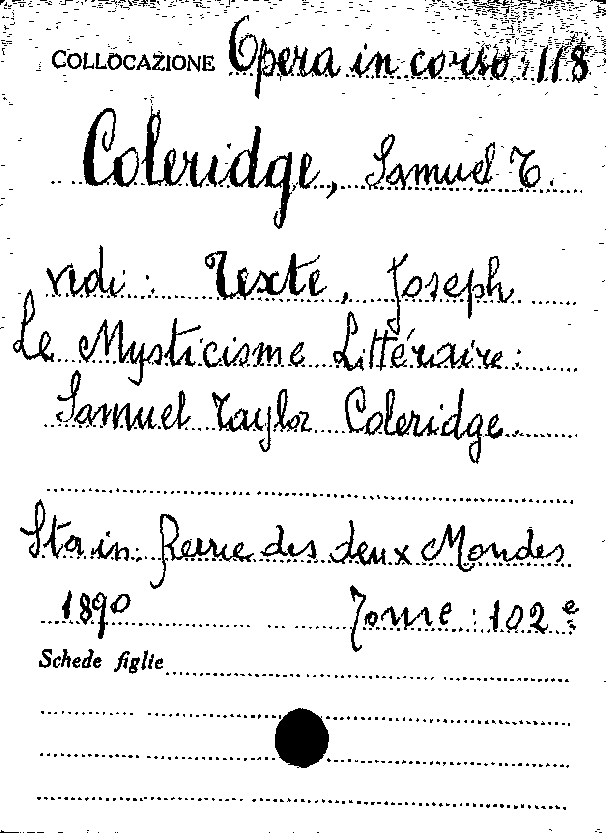 COLLOCAZIONE Opera in corso: 118
Coleridge, Samuel T.
vedi: Texte, Joseph
Le Mysticisme Littéraire:
Samuel Taylor Coleridge.
Sta in: Revue des deux Mondes
1890 Tome: 102 e
Schede figlie